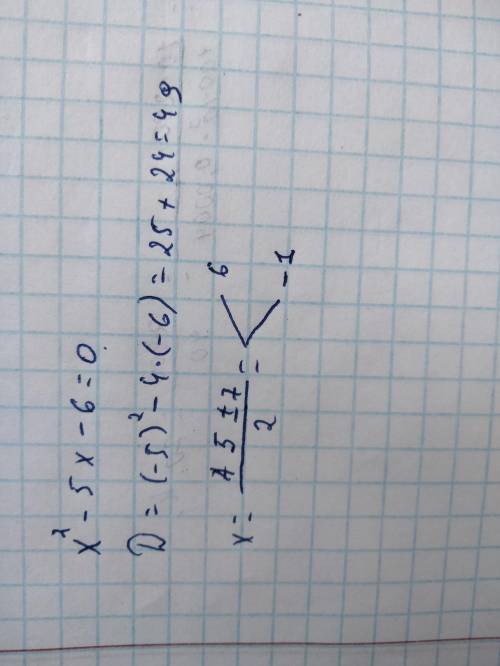 x² - 5x - 6 = 0
D = (-5)² - 4·(-6) = 25 + 24 = 49
x = (5 ± 7)/2 = 6
-1